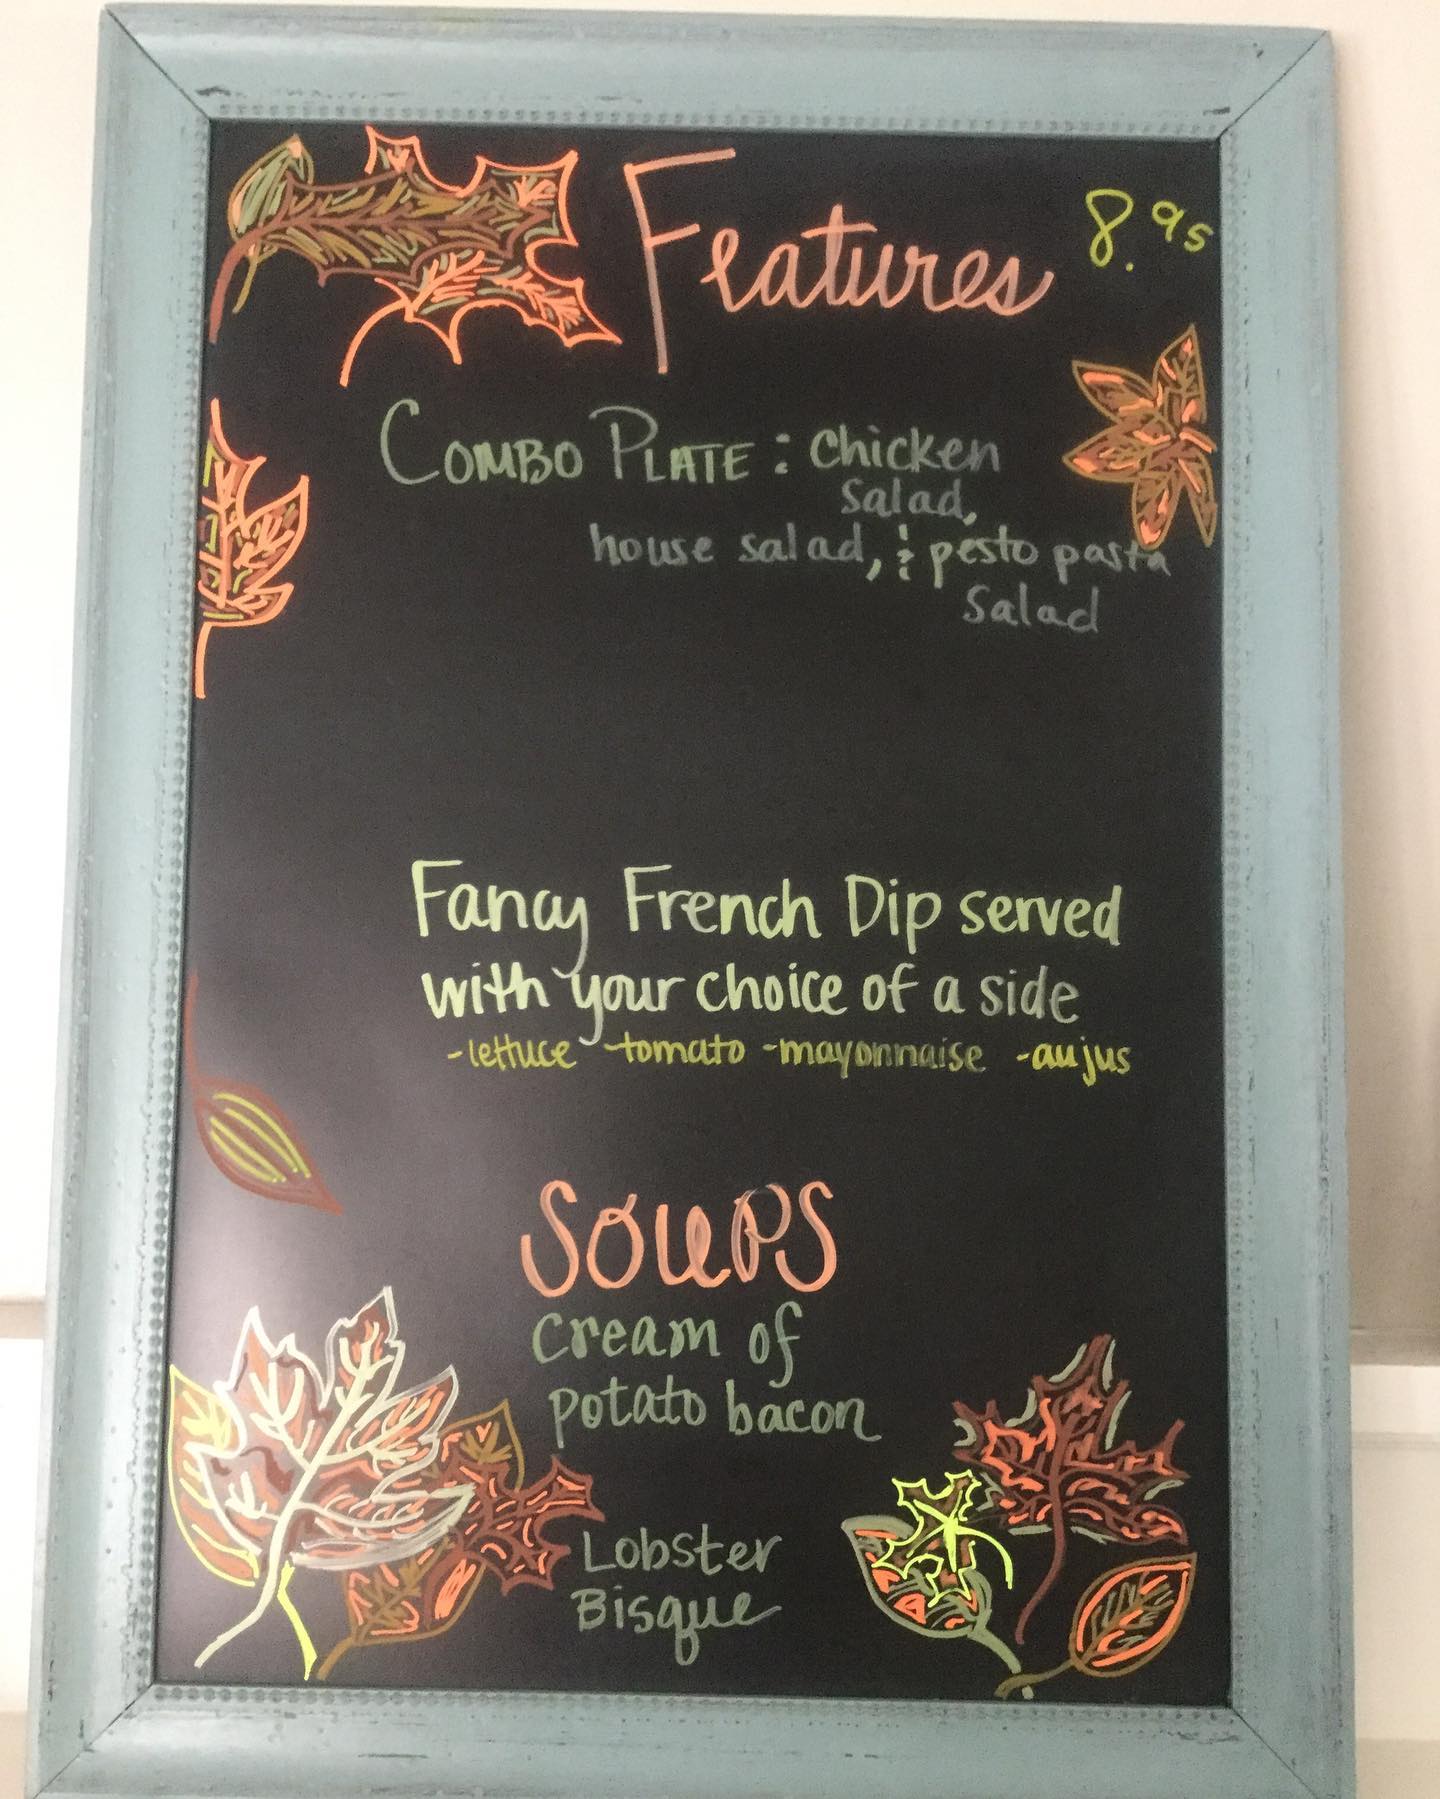 Features 8.95
COMBO PLATE: Chicken
Salad,
house salad, & pesto pasta
Salad
Fancy French Dip served
with your choice of a side
-lettuce -tomato -mayonnaise -aujus
SOUPS
Cream of
potato bacon
Lobster
Bisque